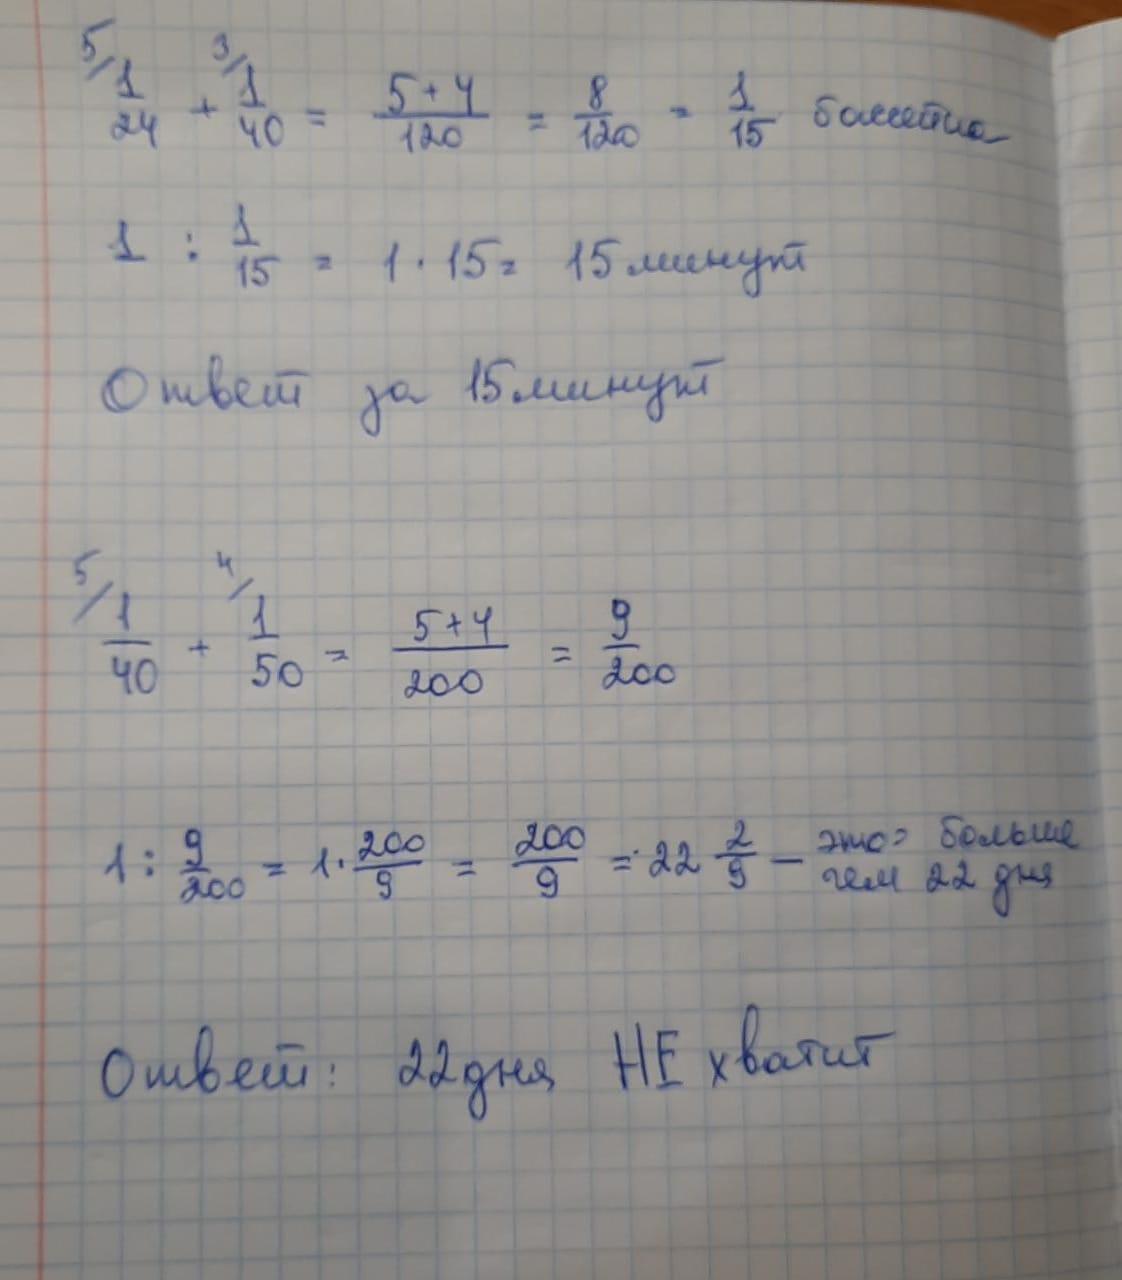 5/ 1/24 + 3/ 1/40 = (5+4)/120 = 8/120 = 1/15
1 : 1/15 = 1 · 15 = 15 минут
Ответ за 15 минут
5/ 1/40 + 4/ 1/50 = (5+4)/200 = 9/200
1 : 9/200 = 1 · 200/9 = 200/9 = 22 2/9 — это > больше
чем 22 дня
Ответ: 22 дня НЕ хватит